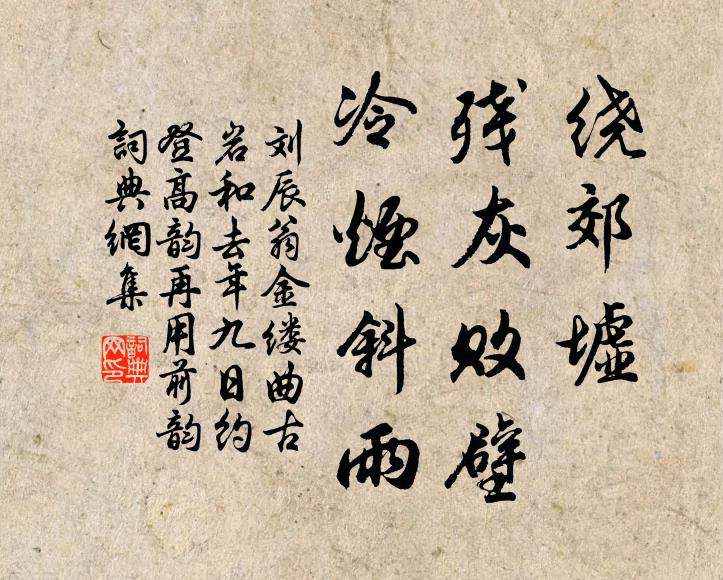 绕郊墟
残灰败壁
冷烟斜雨
刘辰翁金缕曲古
岩和去年九日约
登高韵再用前韵
詞典網集
詞典网印